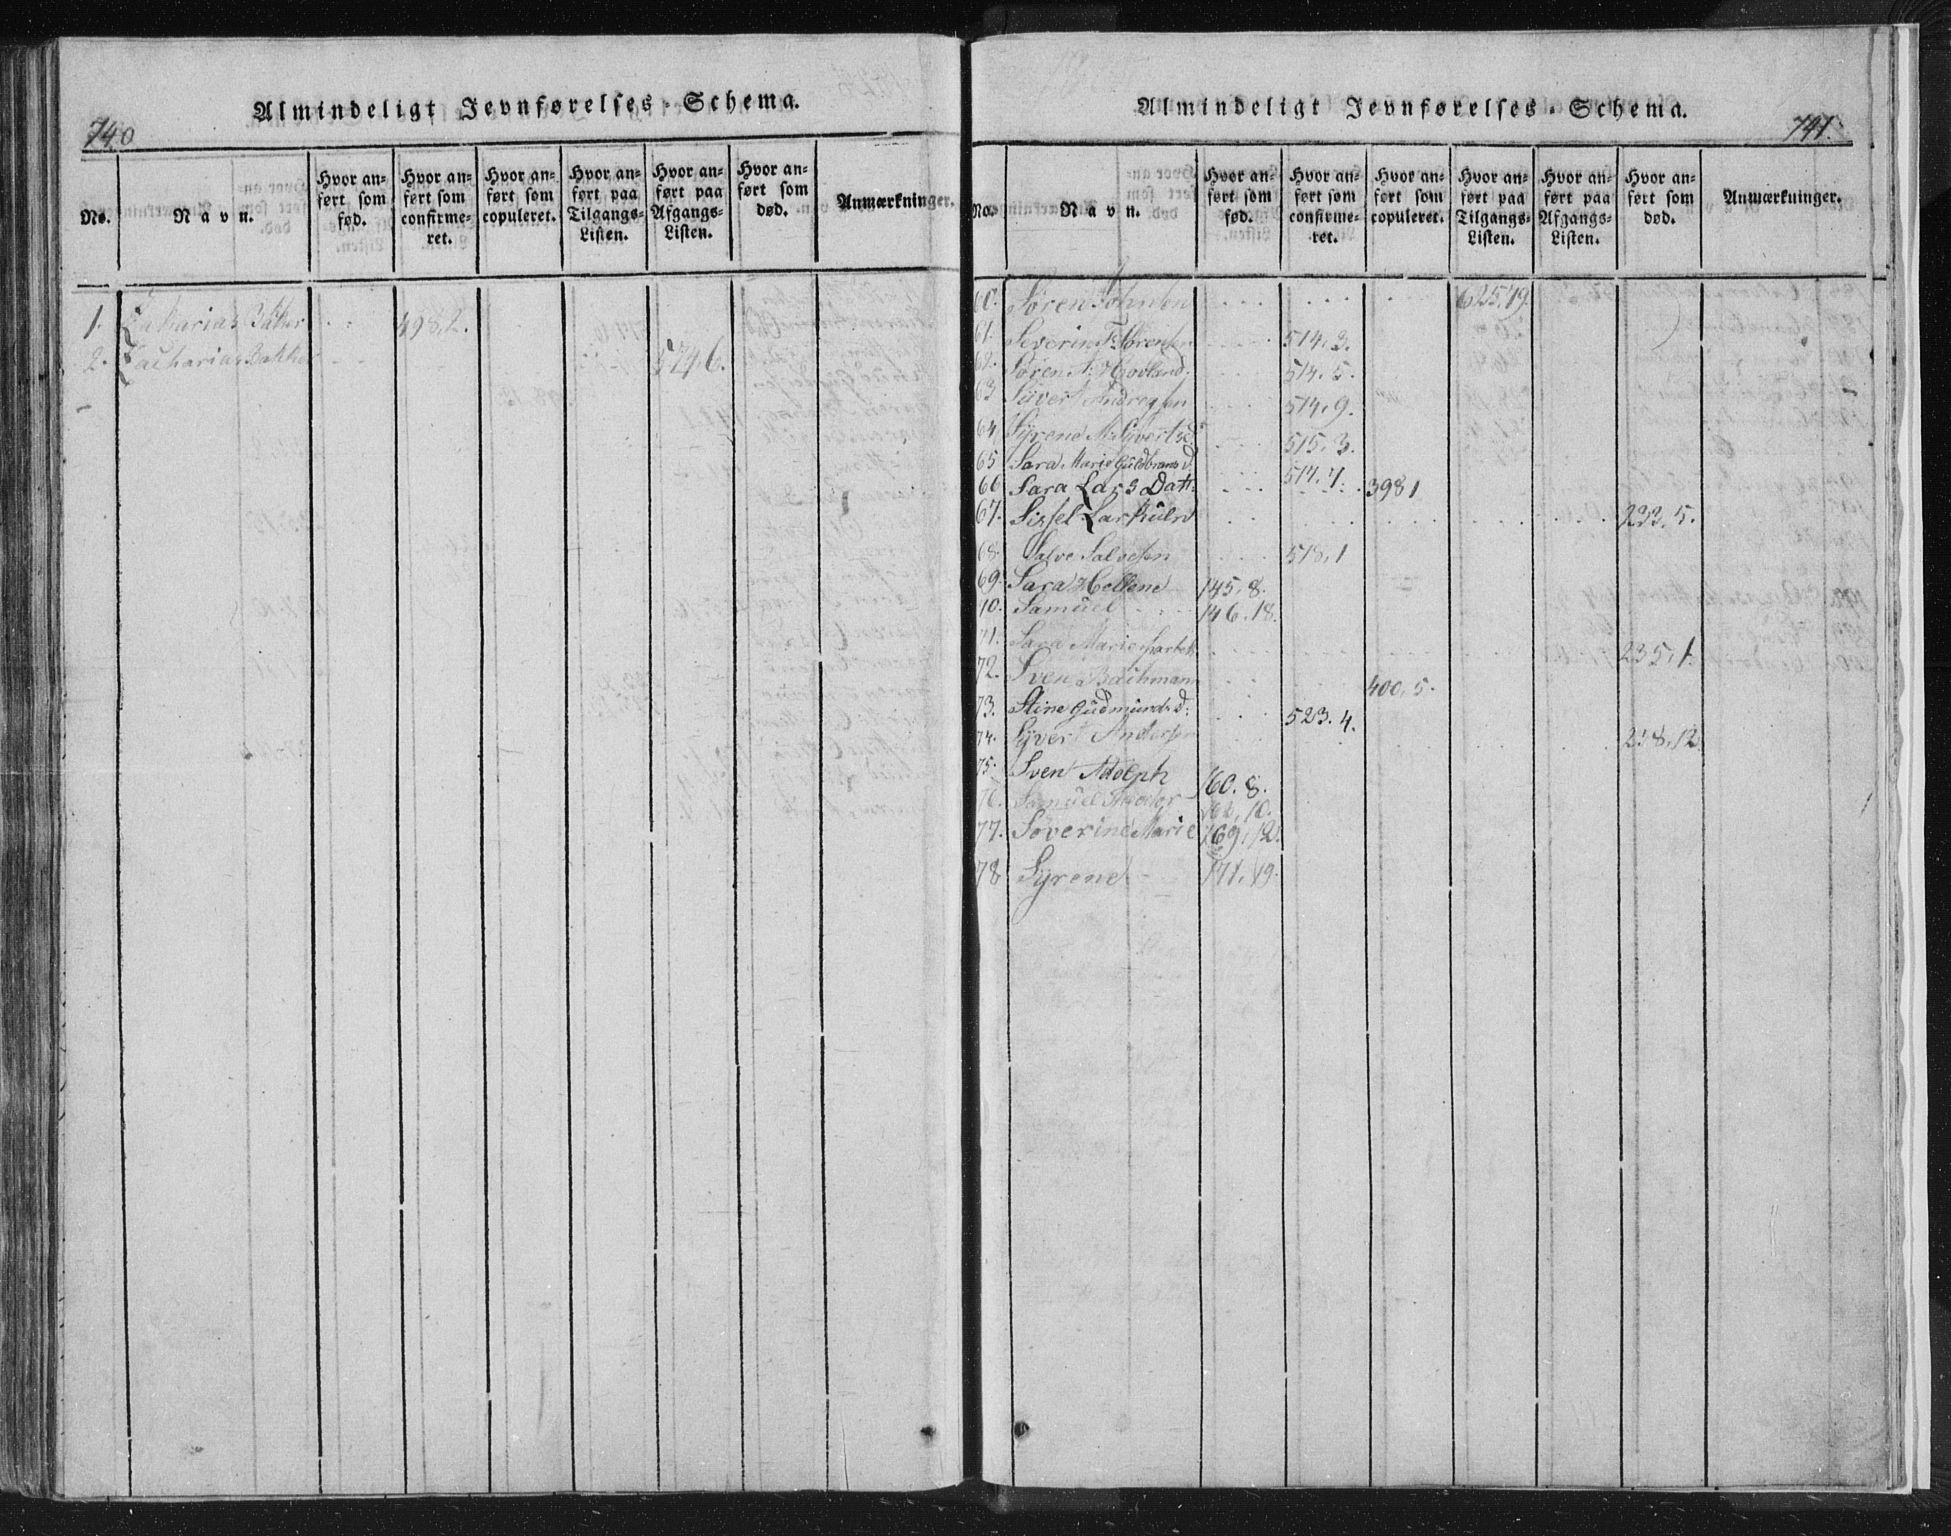 740
Almindeligt Jevnførelses-Schema.
No.
Navn.
Hvor anført som fød.
Hvor anført som confirmeret.
Hvor anført som copuleret.
Hvor anført paa Tilgangs-Listen.
Hvor anført paa Afgangs-Listen.
Hvor anført som død.
Anmærkninger.
1. Zakarias Bakker 498,2.
2. Zacharias Bakker 5746.
741.
Almindeligt Jevnførelses-Schema.
No.
Navn.
Hvor anført som fød.
Hvor anført som confirmeret.
Hvor anført som copuleret.
Hvor anført paa Tilgangs-Listen.
Hvor anført paa Afgangs-Listen.
Hvor anført som død.
Anmærkninger.
60. Søren 625,19.
61. Severin 514,3.
62. Søren A. Hovland. 514,5.
63 Siivert Andreasen 514,9.
64 Syrene M. Syvertsd. 515,3.
65 Sara Marie Guldbrands d. 517,7.
66 Sara Lars Datt. 398 1
67. Sissel 232,5.
68. Salve Salvesen 518,1
69. Sara Hellene 145,8.
70. Samuel 146,18.
71. Sara Marie 235,1.
72. Sven Bachmann 400,5.
73. Stine Gudmunds d: 523.4.
74. Syvert Andersen 238,12
75. Sven Adolph 160.8.
76. Samuel Theodor 162,10.
77. Severine Marie 169,12.
78 Syrene 171,19.